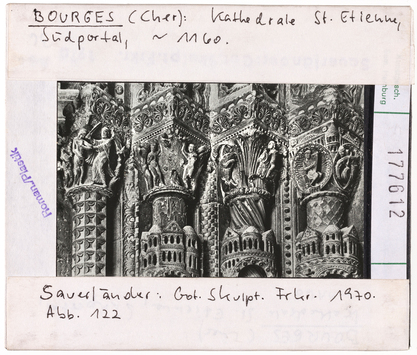 BOURGES (Cher): Kathedrale St. Etienne,
Südportal, ~ 1160.
Roman/Plastik
177612
Sauerländer: Got. Skulpt. Frkr. 1970.
Abb. 122